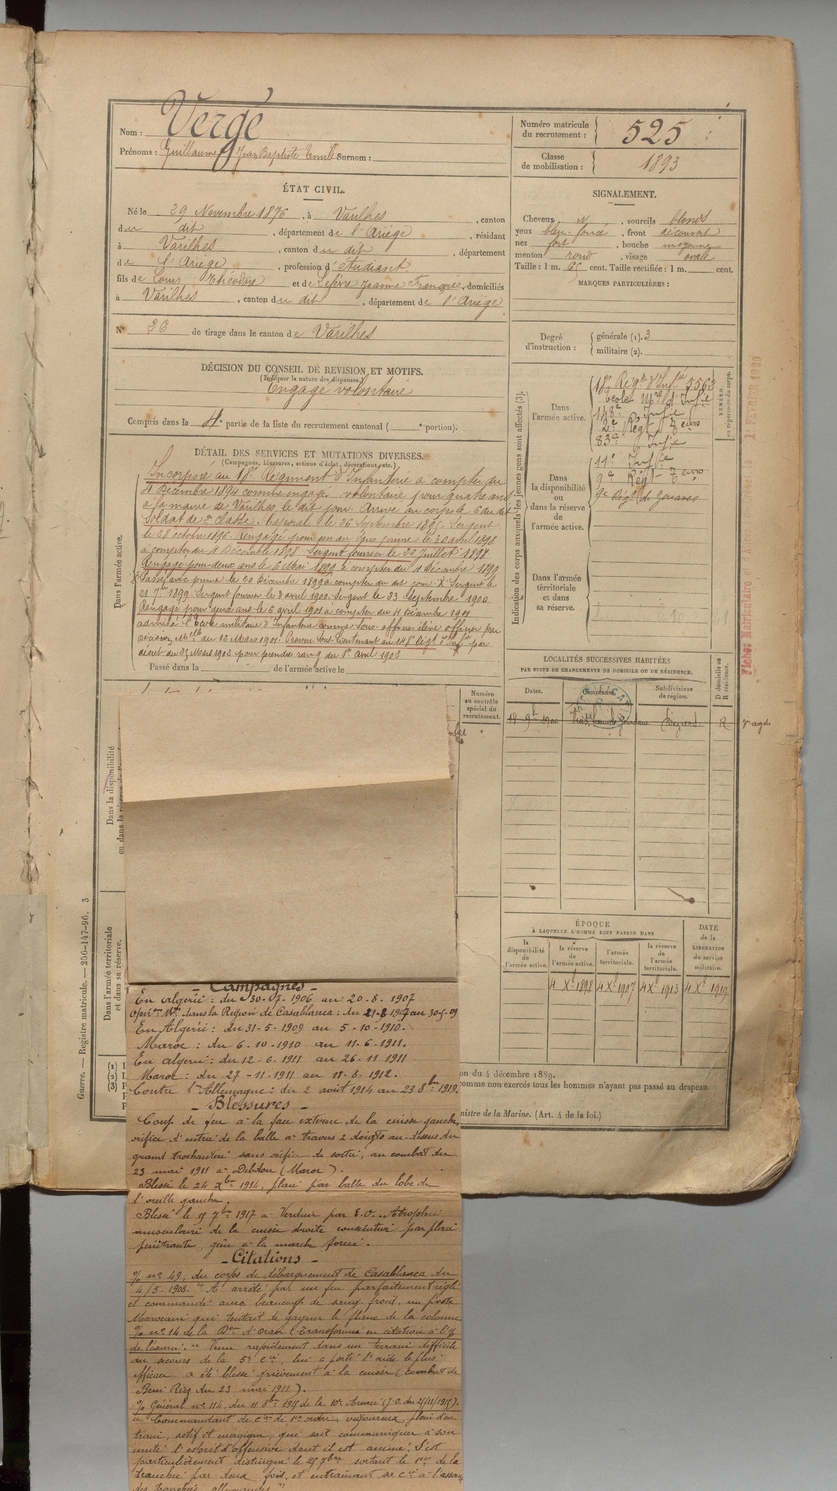 Nom : Vergé
Prénoms : Guillaume Jean Baptiste Emile Surnom :
Numéro matricule du recrutement : 525
Classe de mobilisation : 1893
ÉTAT CIVIL.
Né le 29 Novembre 1876, à Varilhes, canton
du dit, département de l'Ariège, résidant
à Varilhes, canton du dit, département
de l'Ariège, profession d'étudiant
fils de Louis Théodore et de Lefèvre Jeanne Françoise, domiciliés
à Varilhes, canton du dit, département de l'Ariège
N° 36 de tirage dans le canton de Varilhes
SIGNALEMENT.
Cheveux, sourcils blonds
yeux bleu foncé, front découvert
nez fort, bouche moyenne
menton rond, visage ovale
Taille : 1 m. cent. Taille rectifiée : 1 m. cent.
MARQUES PARTICULIÈRES :
Degré d'instruction : générale (1). 3
militaire (2).
DÉCISION DU CONSEIL DE REVISION ET MOTIFS.
(Indiquer la nature des dispenses.)
Engagé volontaire
Compris dans la 4e partie de la liste du recrutement cantonal ( e portion).
DÉTAIL DES SERVICES ET MUTATIONS DIVERSES.
(Campagnes, blessures, actions d'éclat, décorations, etc.)
Dans l'armée active.
Incorporé au Régiment d'Infanterie à compter du
4 Décembre 1894 comme engagé volontaire pour quatre ans
à la mairie de Varilhes, le dit jour. Arrivé au corps le 6 du dit
Soldat de 2e classe. Caporal le 26 Septembre 1895. Sergent
le 28 octobre 1896. Rengagé pour un an avec prime le 30 avril 1898
à compter du 4 Décembre 1898. Sergent fourrier le 22 juillet 1898.
Rengagé pour deux ans le 6 Mai 1899 à compter du 4 Décembre 1899
Sergent le
1899. Sergent fourrier le 8 avril 1900. Sergent le 23 Septembre 1900.
Rengagé pour deux ans le 6 avril 1901 à compter du 4 Décembre 1901
admis à l'Ecole militaire d'Infanterie comme sous officier élève officier par
décision du 12 Mars 1901. Promu Sous-Lieutenant au 143e Régt d'Infie par
décret du 25 Mars 1902 pour prendre rang du 1er avril 1902
Passé dans la de l'armée active le
Indication des corps auxquels les jeunes gens sont affectés (3).
Dans l'armée active.
18e Régt d'Infie 3563
Ecole Mre d'Infie
143e Infie
2e Régt
83e Infie
Dans la disponibilité ou dans la réserve de l'armée active.
11e Infie
9e Régt
9e Régt de Zouaves
Dans l'armée territoriale et dans sa réserve.
NUMÉRO au répertoire du corps.
LOCALITÉS SUCCESSIVES HABITÉES
PAR SUITE DE CHANGEMENTS DE DOMICILE OU DE RÉSIDENCE.
Dates. Communes. Subdivisions de région. D domicile ou R résidence.
1900 Béziers R
Numéro au contrôle spécial du recrutement.
Dans la disponibilité ou dans la réserve
Dans l'armée territoriale et dans sa réserve.
ÉPOQUE
À LAQUELLE L'HOMME DOIT PASSER DANS
la disponibilité de l'armée active. la réserve de l'armée active. l'armée territoriale. la réserve de l'armée territoriale.
DATE de la LIBÉRATION du service militaire.
4 Xe 1898 4 Xe 1907 4 Xe 1913 4 Xe 1919
Guerre. — Registre matricule. — 250-147-96. 3
on du 4 décembre 1889.
comme non exercés tous les hommes n'ayant pas passé au drapeau
nistre de la Marine. (Art. 4 de la loi.)
- Campagnes -
En Algérie : du 30-7-1906 au 20-8-1907
Opérons Mres dans la Région de Casablanca : du 21-8-1907 au 30-5-09
En Algérie : du 31-5-1909 au 5-10-1910.
Maroc : du 6-10-1910 au 11-6-1911.
En algérie : du 12-6-1911 au 26-11-1911
Maroc : du 27-11-1911 au 11-8-1912.
Contre l'Allemagne : du 2 août 1914 au 23 8bre 1919.
- Blessures -
Coup de feu à la face externe de la cuisse gauche,
orifice d'entrée de la balle à travers 2 doigts au dessus du
grand trochanter sans orifice de sortie, au combat du
23 mai 1911 à Debdou (Maroc).
Blessé le 24 Xbre 1914, plaie par balle du lobe de
l'oreille gauche.
Blessé le 17 7bre 1917 à Verdun par E.O. Atrophie
musculaire de la cuisse droite consécutive par plaie
pénétrante, gêne à la marche forcée.
- Citations -
O/ n° 49, du corps de débarquement de Casablanca du
4/5-1908. "A arrêté par un feu parfaitement réglé
et commandé avec beaucoup de sang froid, un parti
Marocain qui tentait de gagner le flanc de la colonne
O/ n° 14 de la Don d'Oran (Transformée en citation à l'O/
de l'armée : "Venu rapidement dans un terrain difficile
au secours de la 5e Cie, lui a porté l'aide la plus
efficace, a été blessé grièvement à la cuisse (combat de
Beni Rieg du 23 mai 1911).
O/ Général n° 114, du 11 8bre 1915 de la 10e Armée (J.O. du 25/11/1915).
"Commandant de Cie de 1er ordre, vigoureux, plein d'en-
train, actif et énergique, qui sait communiquer à son
unité l'esprit d'offensive dont il est animé. S'est
particulièrement distingué le 25 7bre sortant le 1er de la
tranchée par deux fois, et entraînant sa Cie à l'assaut
des tranchées allemandes"